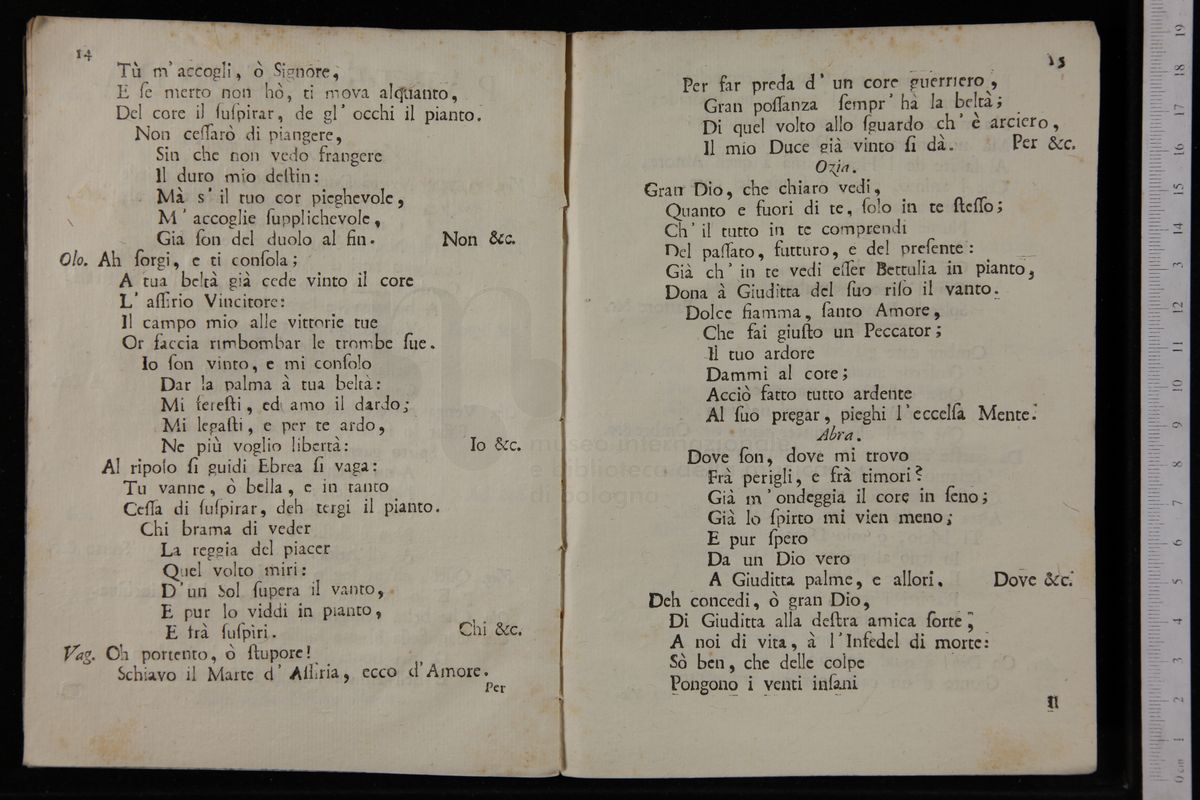 14
Tù m' accogli, ò Signore,
E ſe merto non hò, ti mova alquanto,
Del core il ſuſpirar, de gl' occhi il pianto.
Non ceſſarò di piangere,
Sin che non vedo frangere
Il duro mio deſtin:
Mà s' il tuo cor pieghevole,
M' accoglie ſupplichevole,
Gia ſon del duolo al fin. Non &c.
Olo. Ah ſorgi, e ti conſola;
A tua beltà già cede vinto il core
L' aſſirio Vincitore:
Il campo mio alle vittorie tue
Or faccia rimbombar le trombe ſue.
Io ſon vinto, e mi conſolo
Dar la palma à tua beltà:
Mi fereſti, ed amo il dardo;
Mi legaſti, e per te ardo,
Ne più voglio libertà: Io &c.
Al ripoſo ſi guidi Ebrea ſi vaga:
Tu vanne, ò bella, e in tanto
Ceſſa di ſuſpirar, deh tergi il pianto.
Chi brama di veder
La reggia del piacer
Quel volto miri:
D'un Sol ſupera il vanto,
E pur lo viddi in pianto,
E frà ſuſpiri. Chi &c.
Vag. Oh portento, ò ſtupore!
Schiavo il Marte d' Aſſiria, ecco d'Amore.
Per
15
Per far preda d' un core guerriero,
Gran poſſanza ſempr' hà la beltà;
Di quel volto allo ſguardo ch' è arciero,
Il mio Duce già vinto ſi dà. Per &c.
Ozia.
Gran Dio, che chiaro vedi,
Quanto e fuori di te, ſolo in te ſteſſo;
Ch' il tutto in te comprendi
Del paſſato, futturo, e del preſente:
Già ch' in te vedi eſſer Bettulia in pianto,
Dona à Giuditta del ſuo riſo il vanto.
Dolce fiamma, ſanto Amore,
Che fai giuſto un Peccator;
Il tuo ardore
Dammi al core;
Acciò fatto tutto ardente
Al ſuo pregar, pieghi l'eccelſa Mente.
Abra.
Dove ſon, dove mi trovo
Frà perigli, e frà timori?
Già m'ondeggia il core in ſeno;
Già lo ſpirto mi vien meno;
E pur ſpero
Da un Dio vero
A Giuditta palme, e allori. Dove &c.
Deh concedi, ò gran Dio,
Di Giuditta alla deſtra amica ſorte;
A noi di vita, à l'Infedel di morte:
Sò ben, che delle colpe
Pongono i venti inſani
Il
museo internazionale
e biblioteca della musica
di bologna